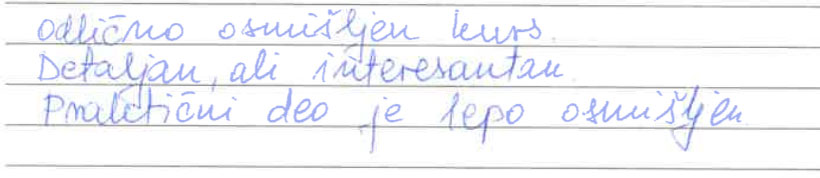 odlično osmišljen kurs.
Detaljan, ali interesantan.
Praktični deo je lepo osmišljen